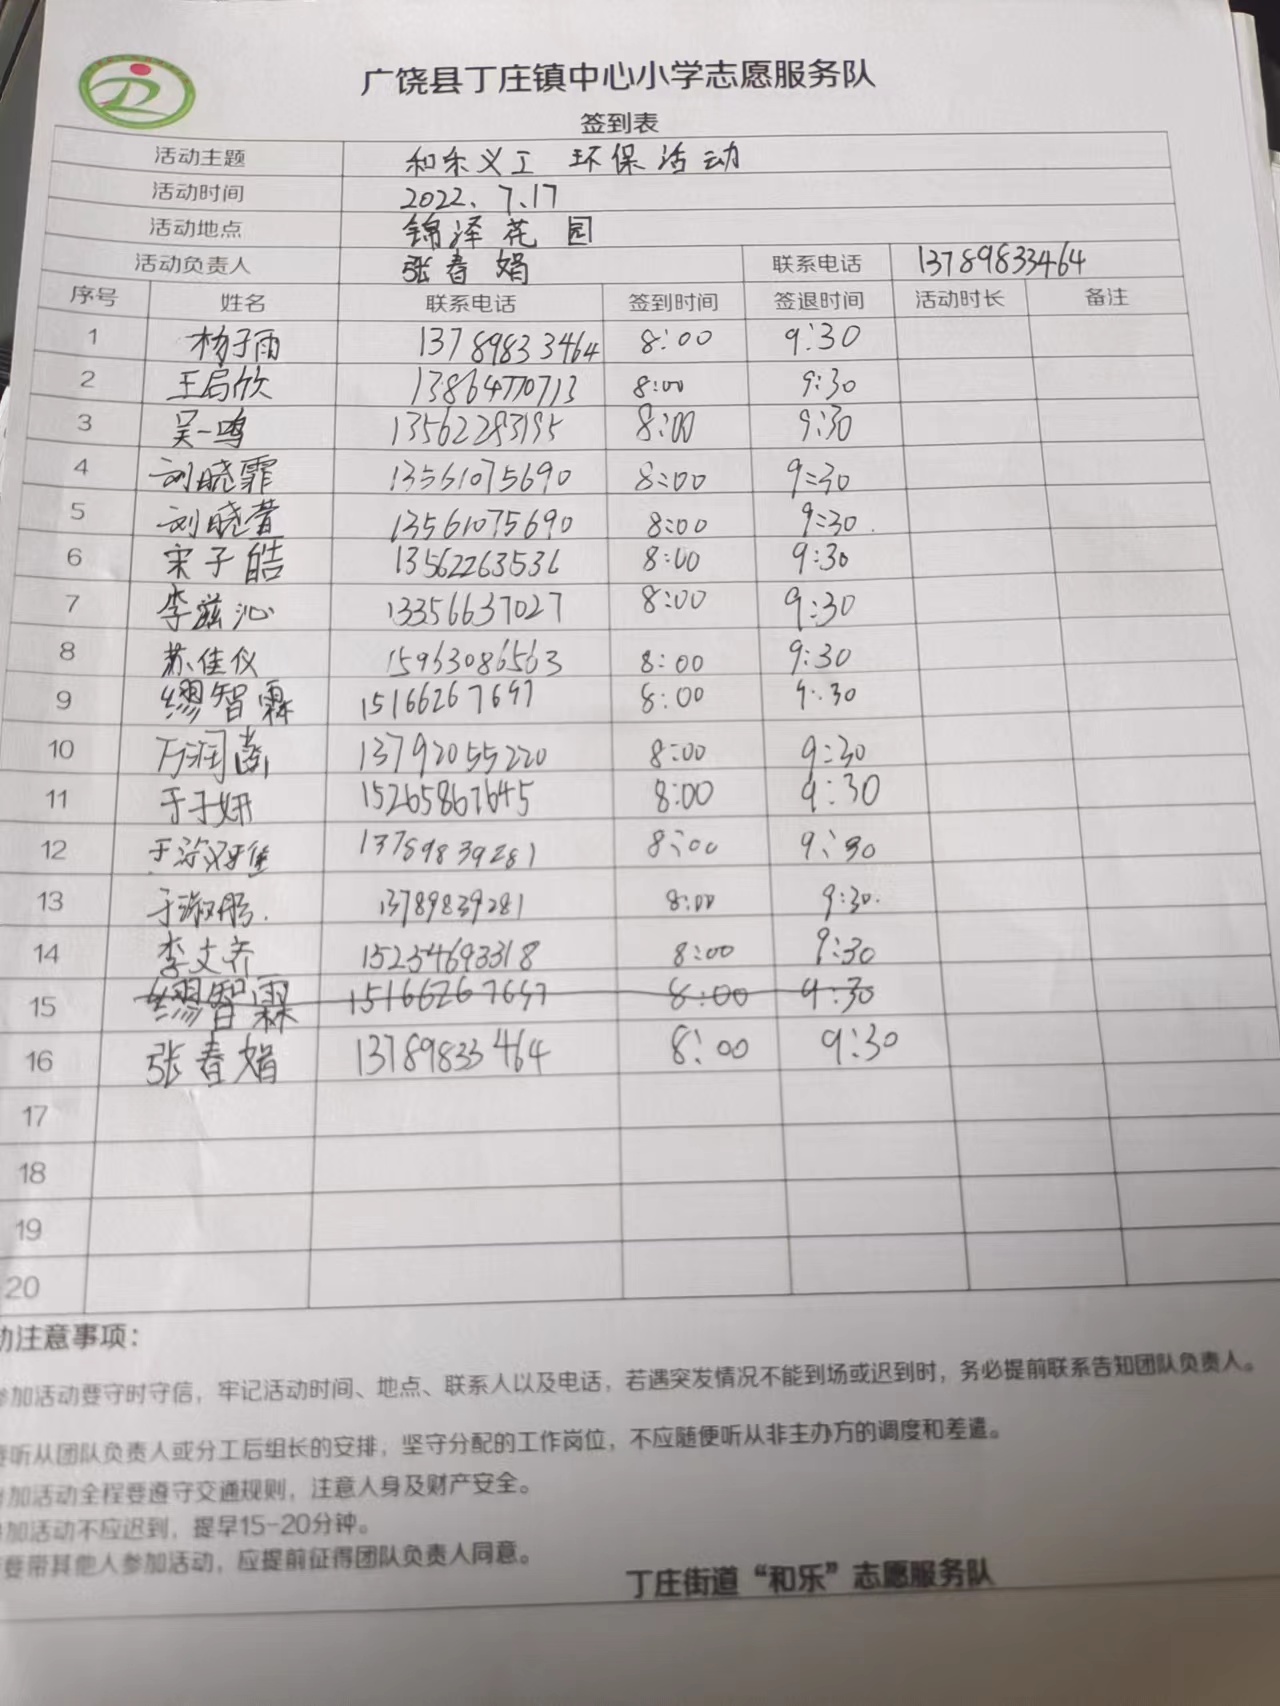 广饶县丁庄镇中心小学志愿服务队
签到表
活动主题 和乐义工 环保活动
活动时间 2022.7.17
活动地点 锦泽花园
活动负责人 张春娟 联系电话 13789833464
序号 姓名 联系电话 签到时间 签退时间 活动时长 备注
1 杨子雨 13789833464 8:00 9:30
2 王启欣 13864770713 8:00 9:30
3 吴一鸣 13562283195 8:00 9:30
4 刘晓霏 13561075690 8:00 9:30
5 刘晓萱 13561075690 8:00 9:30
6 宋子皓 13562263536 8:00 9:30
7 李滋沁 13356637027 8:00 9:30
8 苏佳仪 15963086563 8:00 9:30
9 缪智霖 15166267697 8:00 9:30
10 13792055220 8:00 9:30
11 于子妍 15265867645 8:00 9:30
12 13789839281 8:00 9:30
13 于淑彤 13789839281 8:00 9:30
14 李文齐 15254693318 8:00 9:30
15 缪智霖 15166267697 8:00 9:30
16 张春娟 13789833464 8:00 9:30
17
18
19
20
动注意事项：
参加活动要守时守信，牢记活动时间、地点、联系人以及电话，若遇突发情况不能到场或迟到时，务必提前联系告知团队负责人。
要听从团队负责人或分工后组长的安排，坚守分配的工作岗位，不应随便听从非主办方的调度和差遣。
参加活动全程要遵守交通规则，注意人身及财产安全。
参加活动不应迟到，提早15-20分钟。
要带其他人参加活动，应提前征得团队负责人同意。
丁庄街道“和乐”志愿服务队